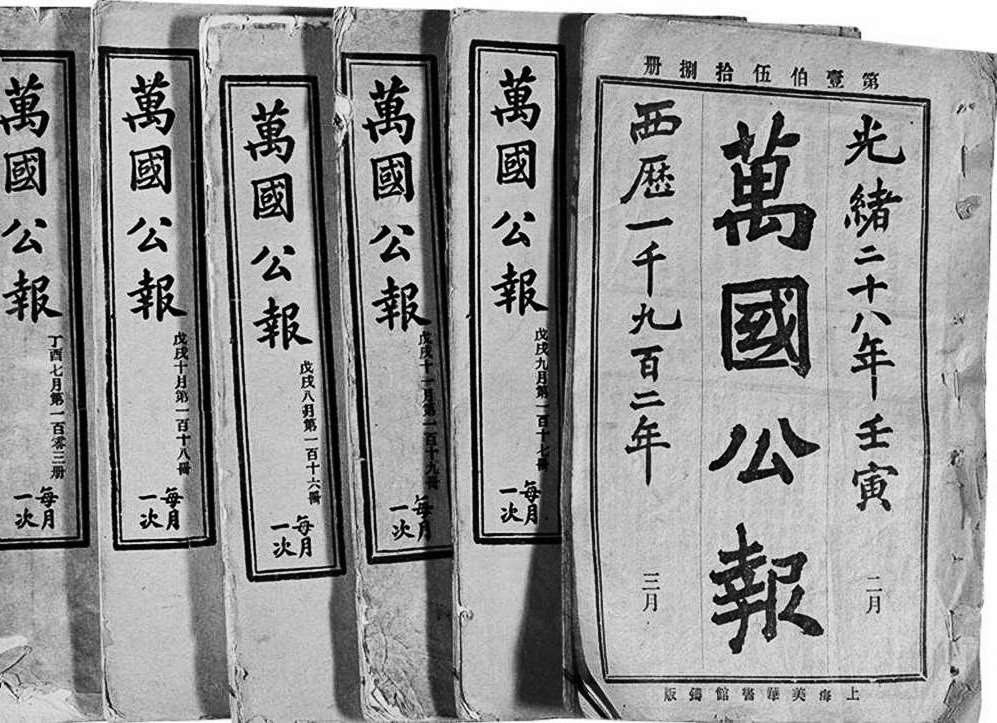 萬國公報
丁酉七月第一百零三册
每月
一次
萬國公報
戊戌十月第一百十八冊
每月
一次
萬國公報
戊戌八月第一百十六冊
每月
一次
萬國公報
戊戌十一月第一百十九冊
每月
一次
萬國公報
戊戌九月第一百十七冊
每月
一次
第壹伯伍拾捌册
光緒二十八年壬寅
二月
萬國公報
西歷一千九百二年
三月
上海美華書館鑄版